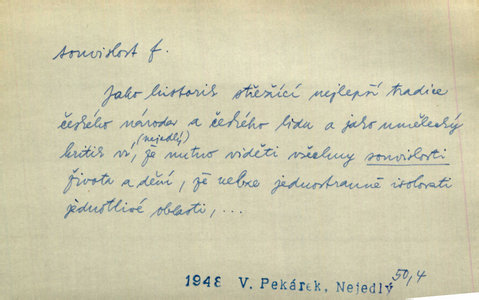 souvislost f.
Jako historik střežící nejlepší tradice
českého národa a českého lidu a jako umělecký
(nejedlý)
kritik ví, že nutno viděti všechny souvislosti
života a dění, že nelze jednostranně isolovati
jednotlivé oblasti, ...
1948 V. Pekárek, Nejedlý 50,4